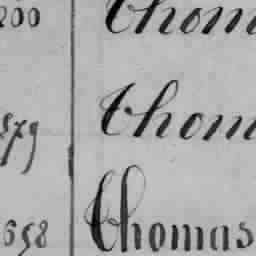 200 Thom
579 Thom
658 Thomas